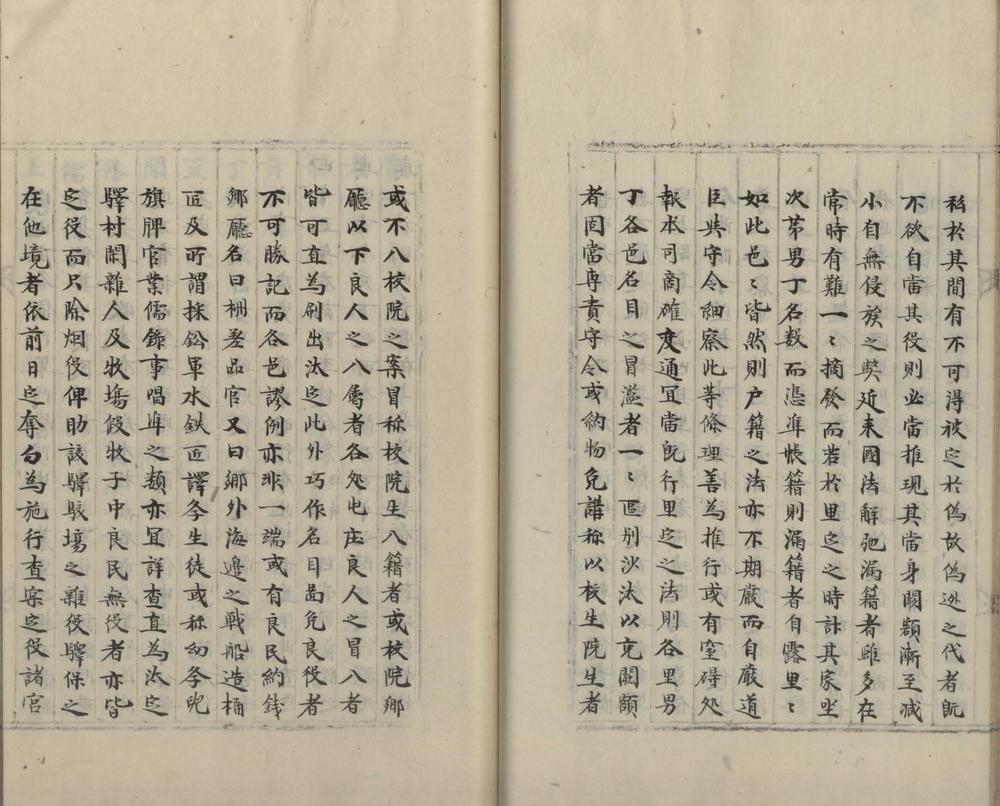 私於其間有不可得被定於偽故偽逃之代者旣
不欲自當其役則必當推現其當身闕額漸至減
小自無侵族之弊近來國法解弛漏籍者雖多在
常時有難一〻摘發而若於里定之時計其家坐
次第男丁名数而憑準帳籍則漏籍者自露里〻
如此邑〻皆然則户籍之法亦不期嚴而自嚴道
臣與守令細察此等條理善為推行或有窒碍處
報本司商確變通冝當旣行里定之法則各里男
丁各邑名目之冒濫者一〻區別沙汰以充闕額
者固當專責守令或約物免講称以校生院生者
或不入校院之案冒称校院生入籍者或校院鄉
廳以下良人之入属者各處屯庄良人之冒入者
皆可直為刷出汰定此外巧作名目啚免良役者
不可勝記而各邑謬例亦非一端或有良民約錢
鄉廳名曰栅差品官又曰鄉外海邊之戰船造桶
匠及所謂採鈆軍水鉄匠譯學生徒或称幼學兒
旗牌官業儒錄事唱準之類亦冝詳查直為汰定
驛村閑雜人及牧塲假牧子中良民無役者亦皆
定役而只除烟役俾助該驛該塲之雜役驛保之
在他境者依前日定奪勿為施行查案定役諸宮